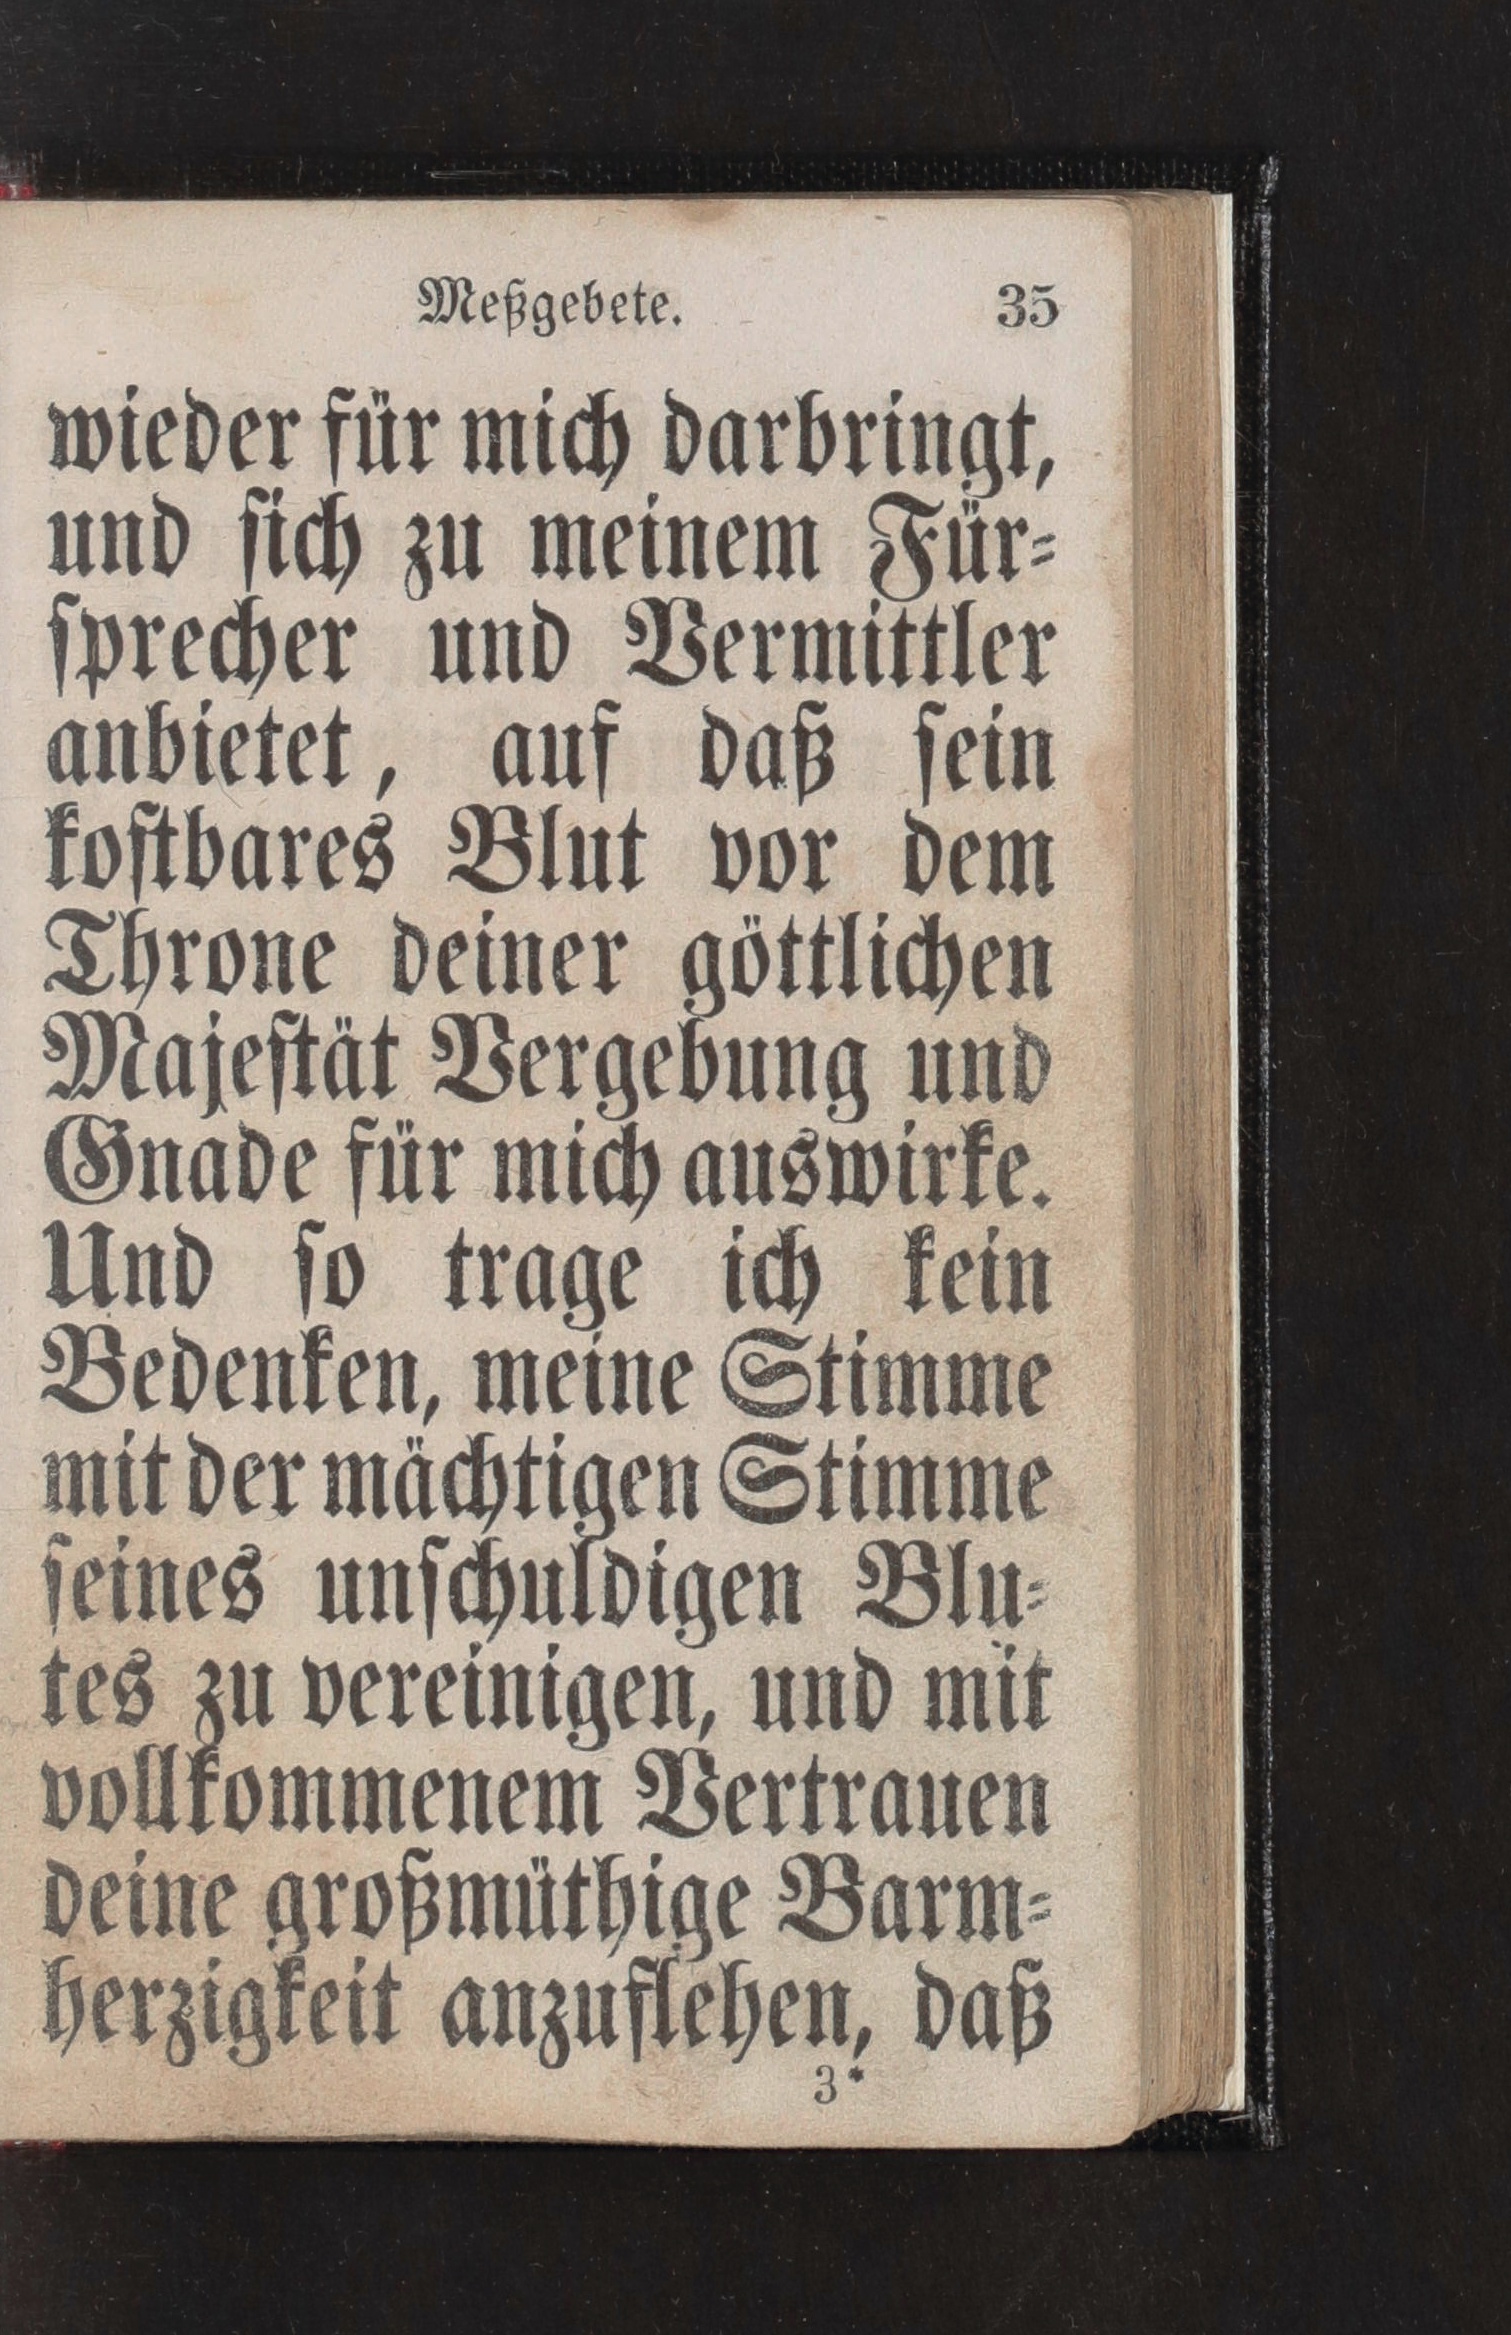 Meßgebete. 35
wieder für mich darbringt,
und sich zu meinem Für-
sprecher und Vermittler
anbietet, auf daß sein
kostbares Blut vor dem
Throne deiner göttlichen
Majestät Vergebung und
Gnade für mich auswirke.
Und so trage ich kein
Bedenken, meine Stimme
mit der mächtigen Stimme
seines unschuldigen Blu-
tes zu vereinigen, und mit
vollkommenem Vertrauen
deine großmüthige Barm-
herzigkeit anzuflehen, daß
3*